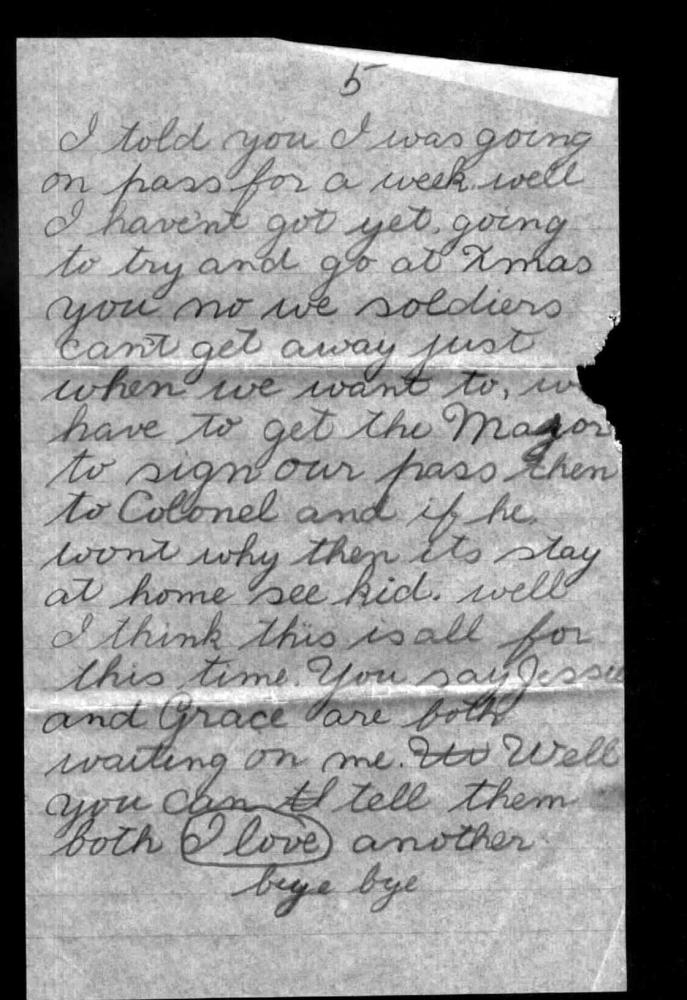 5
I told you I was going
on pass for a week. well
I have'nt got yet, going
to try and go at Xmas
you no we soldiers
can't get away just
when we want to, w
have to get the Major
to sign our pass then
to Colonel and if he
wont why then its stay
at home see kid. well
I think this is all for
this time. You say Jessie
and Grace are both
waiting on me. Well
you can tell them
both I love another
beye bye